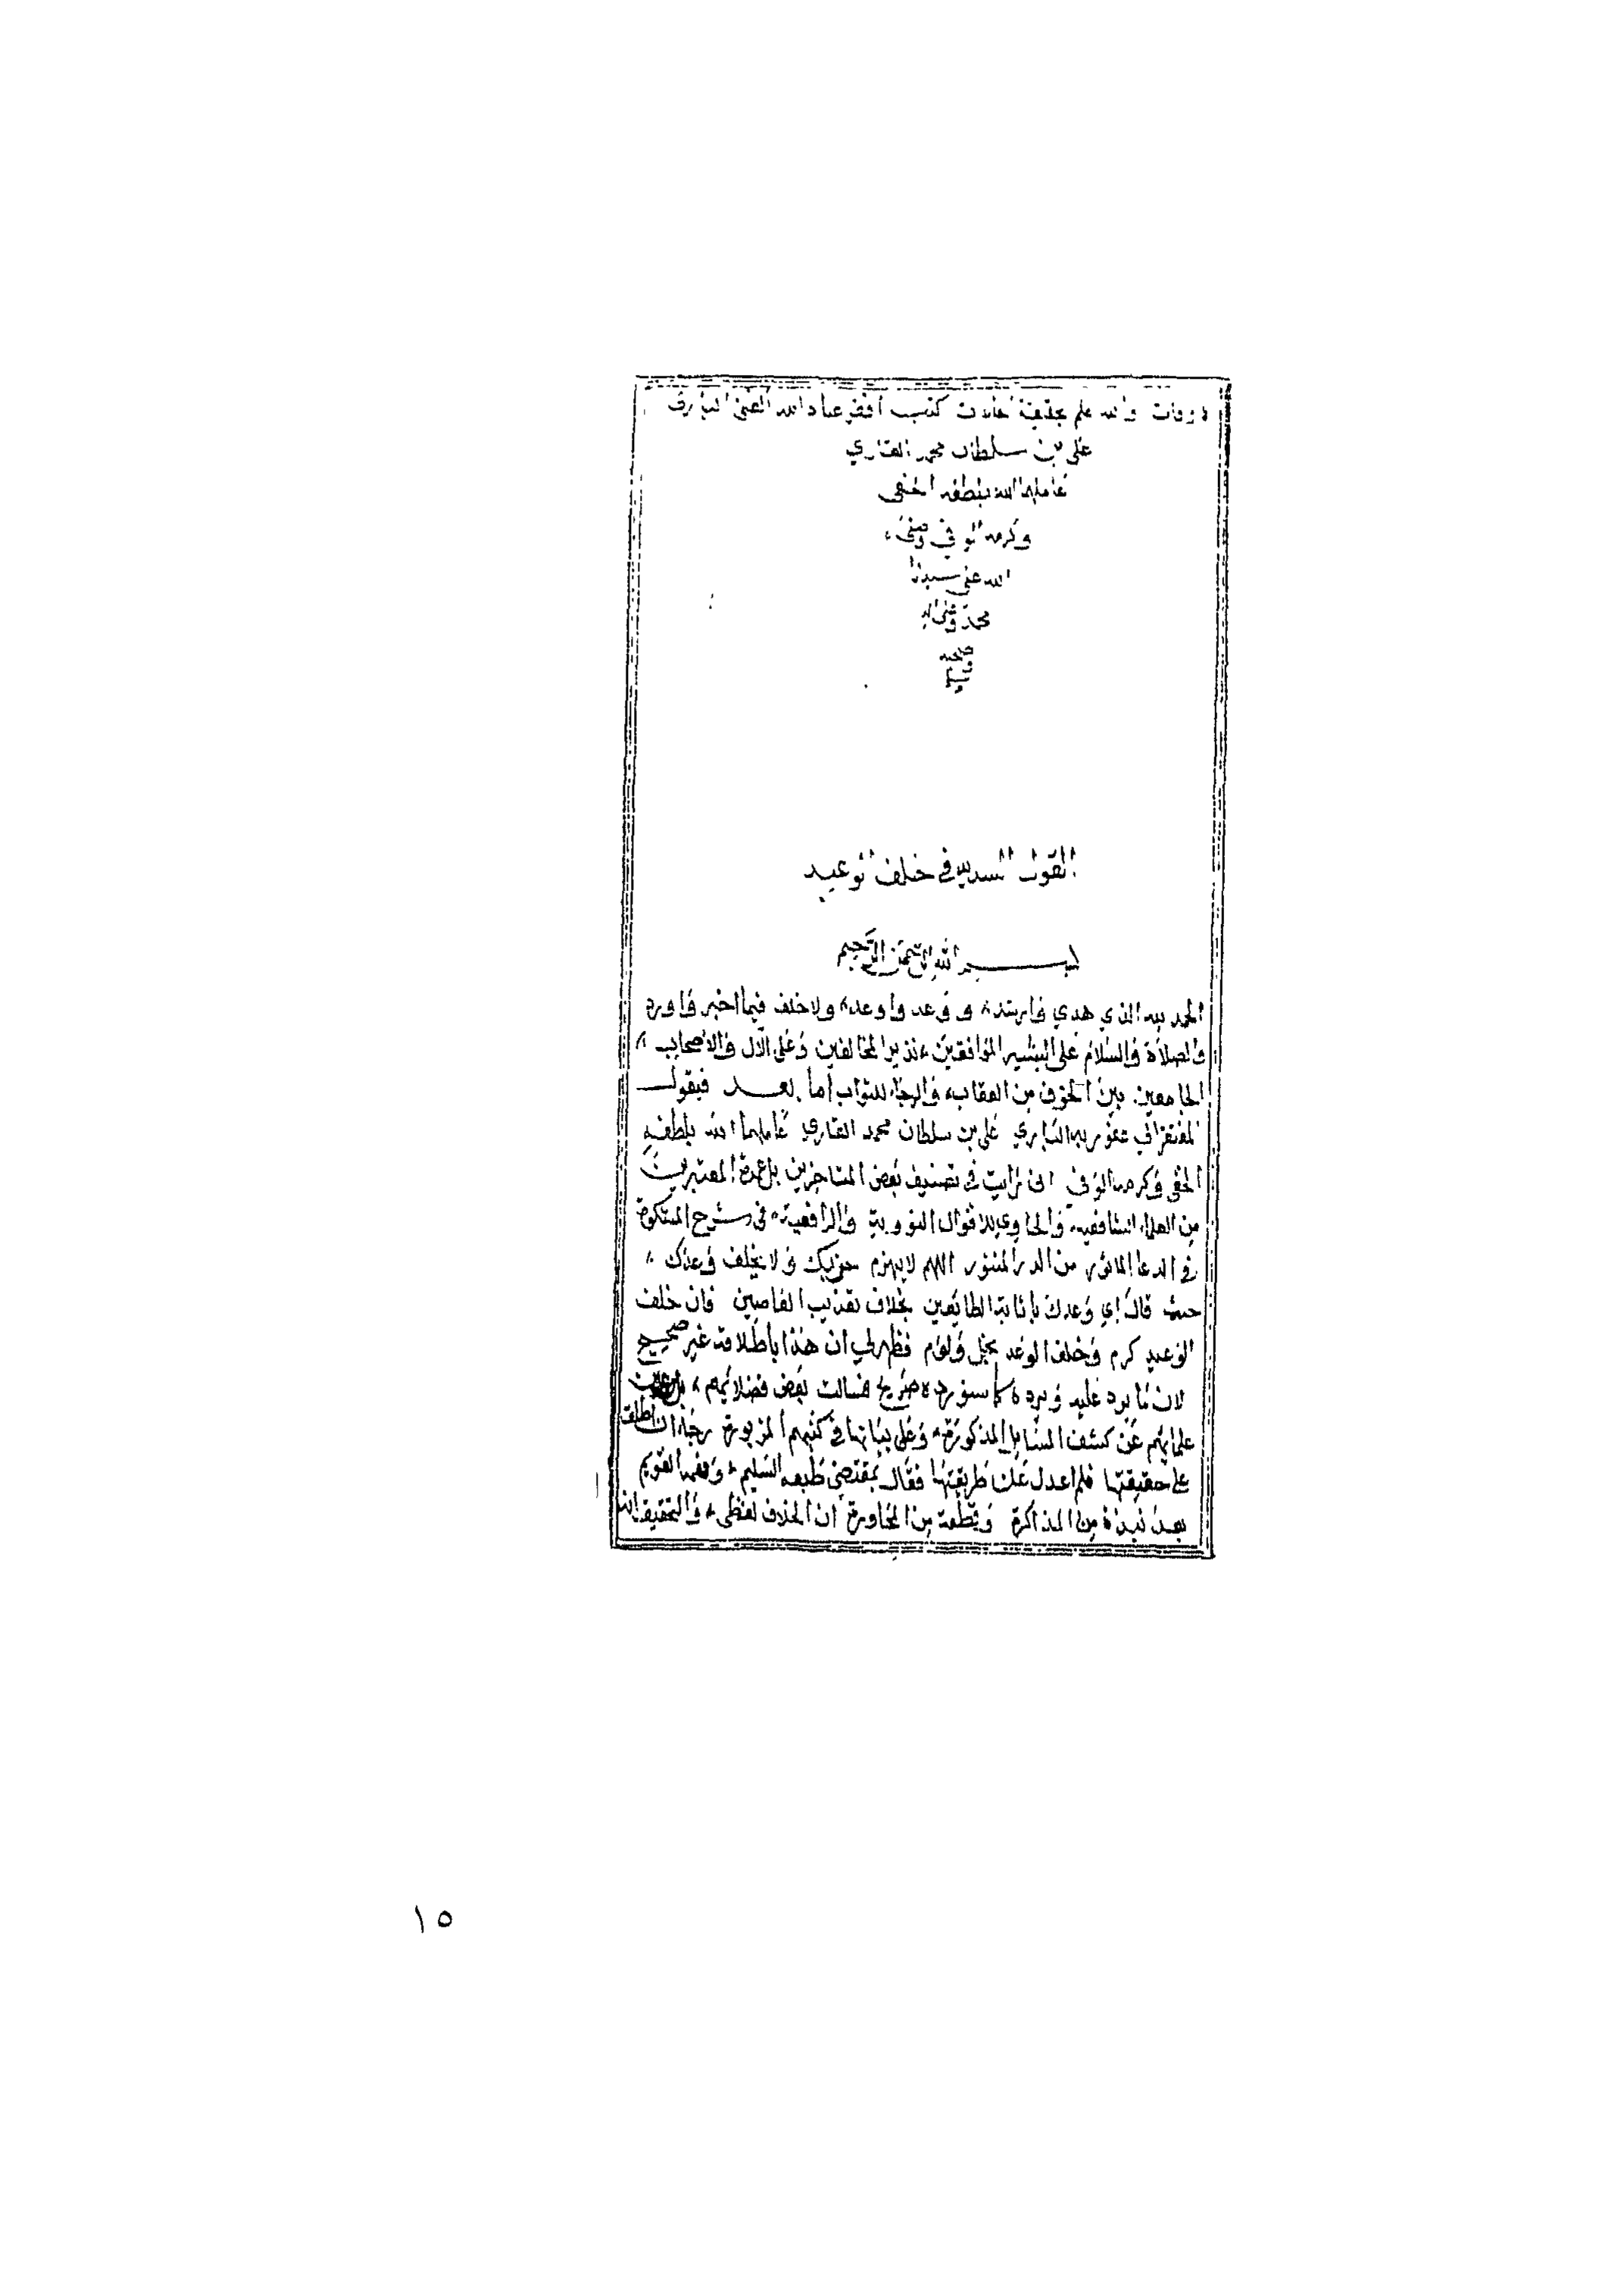 والله اعلم بحقيقة الحالات كتبه افقر عباد الله الغني الباري
علي بن سلطان محمد القاري
عاملهما الله بلطفه الخفي
وكرمه الوفي وصلى
الله على سيدنا
محمد وعلى اله
وصحبه
وسلم
القول السديد في خلف الوعيد
بسم الله الرحمن الرحيم
الحمد لله الذي هدي وارشد، ووعد واوعد، ولا خلف فيما اخبر واورد
والصلاة والسلام على البشير للموافقين، نذير المخالفين وعلى الآل والاصحاب،
الجامعين بين الخوف من العقاب، والرجاء للثواب أما بعد فيقول
المفتقر الي عفو ربه الباري علي بن سلطان محمد القاري عاملهما الله بلطفه
الخفي وكرمه الوفي اني رايت في تصنيف بعض المتاخرين بل عمدة المعتبرين
من العلماء الشافعية، والحاوي للاقوال النووية والرافعية، في شرح المشكوة
في الدعا الماثور من الدر المنثور اللهم لا يهزم جندك ولا يخلف وعدك،
حيث قال اي وعدك باثابة الطائعين بخلاف تعذيب العاصين فان خلف
الوعيد كرم وخلف الوعد بخل ولؤم فظهر لي ان هذا باطلاقه غير صحيح
لان ما يرد عليه ويرده كما سنورده صريح فسالت بعض فضلائهم، بل
علمايهم عن كشف المسايل المذكورة، وعلى بيانها في كتبهم المزبورة رجاء ان اطلع
على حقيقتها فلم اعدل عن طريقتها فقال بمقتضى طبعه السليم، وفهمه القويم
بعد نبذة من المذاكرة وقطعة من المحاورة ان الخلاف لفظي، والتحقيق
١٥